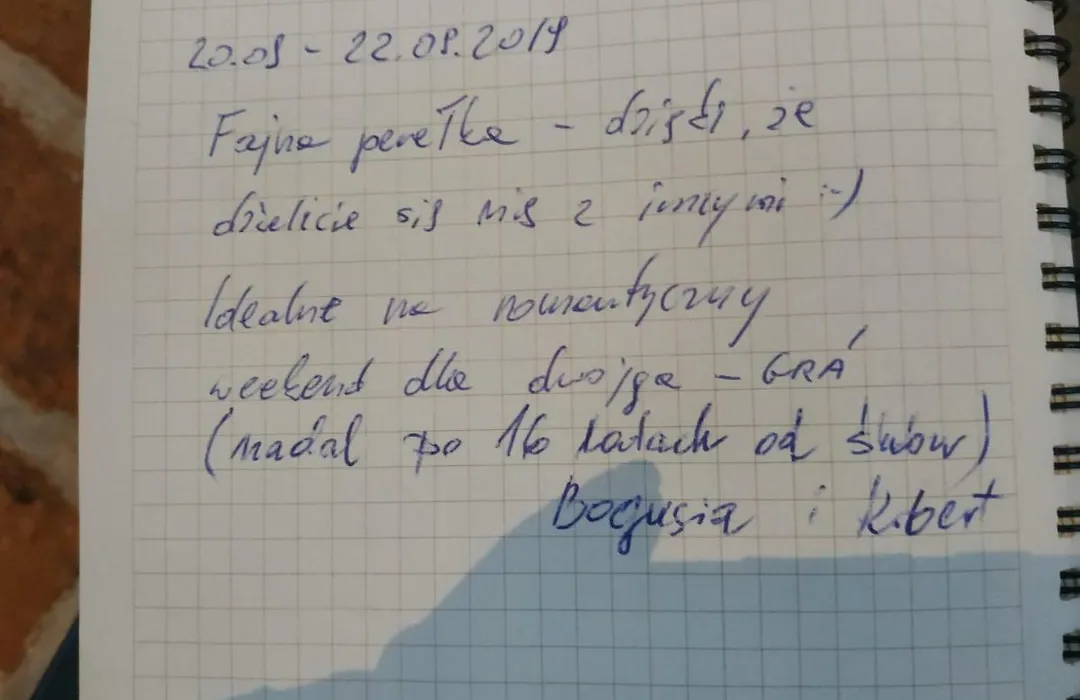 20.09 - 22.09.2019
Fajna perełka - dzięki, że
dzielicie się nią z innymi :-)
Idealne na romantyczny
weekend dla dwojga - GRA
(nadal po 16 latach od
Bogusia i Robert